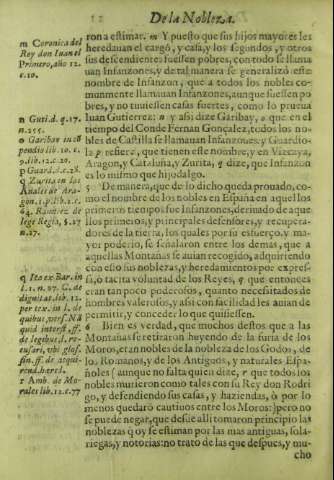 12 De la Nobleza.
m Coronica del
Rey don Iuan el
Primero, año 12.
c.10.
n Guti. d. q. 17.
n. 255.
o Garibay in cō
pendio lib. 10. c.
9. lib. 12. c. 20.
p Guard. d. c. 28.
q Zurita en los
Anales de Ara-
gon. 1. p. lib. 1. c.
64. Ramirez de
lege Regia, §. 27
n. 27.
q Ita ex Bar. in
l. 1. n. 97. C. de
dignitat. lib. 12.
per tex. in l. de
quibus, vers. Nā
quid interest. ff.
de legibus, l. re-
cusari, vbi glos.
fin. ff. de acqui-
rend. hered.
r Amb. de Mo-
rales lib. 12. c. 77
ron a estimar. m Y puesto que sus hijos mayores les
heredauan el cargo, y casa, y los segundos, y otros
sus descendiente: fuessen pobres, con todo se llama
uan Infanzones, y de tal manera se generalizò este
nombre de Infanzon, que a todos los nobles co-
munmente llamauan Infanzones, aunque fuessen po
bres, y no tuuiessen casas fuertes, como lo prueua
Iuan Gutierrez: n y assi dize Garibay, o que en el
tiempo del Conde Fernan Gonçalez, todos los no-
bles de Castilla se llamauan Infanzones, y Guardio-
la p refiere, que tienen este nombre, y en Vizcaya,
Aragon, y Cataluña, y Zurita, q dize, que Infanzon
es lo mismo que hijodalgo.
5 De manera, que de lo dicho queda prouado, co-
mo el nombre de los nobles en España en aquellos
primeros tiempos fue Infanzones, deriuado de aque
llos primeros, y principales defensores, y recupera-
dores de la tierra, los quales por su esfuerço, y ma-
yor poderio, se señalaron entre los demàs, que a
aquellas Montañas se auian recogido, adquiriendo
con esto sus noblezas, y heredamientos por expres-
sa, ò tacita voluntad de los Reyes, q que entonces
eran tan poco poderosos, quanto necessitados de
hombres valerosos, y assi con facilidad les auian de
permitir, y conceder lo que quisiessen.
6 Bien es verdad, que muchos destos que a las
Montañas se retiraron huyendo de la furia de los
Moros, eran nobles de la nobleza de los Godos, de
los Romanos, y de los Antiguos, y naturales Espa-
ñoles (aunque no falta quien dize, r que todos los
nobles murieron como tales con su Rey don Rodri
go, y defendiendo sus casas, y haziendas, ò por lo
menos quedarō cautiuos entre los Moros:) pero no
se puede negar, que desde alli tomaron principio las
noblezas q̄ oy se estiman por las mas antiguas, sola-
riegas, y notorias: no trato de las que despues, y mu-
cho